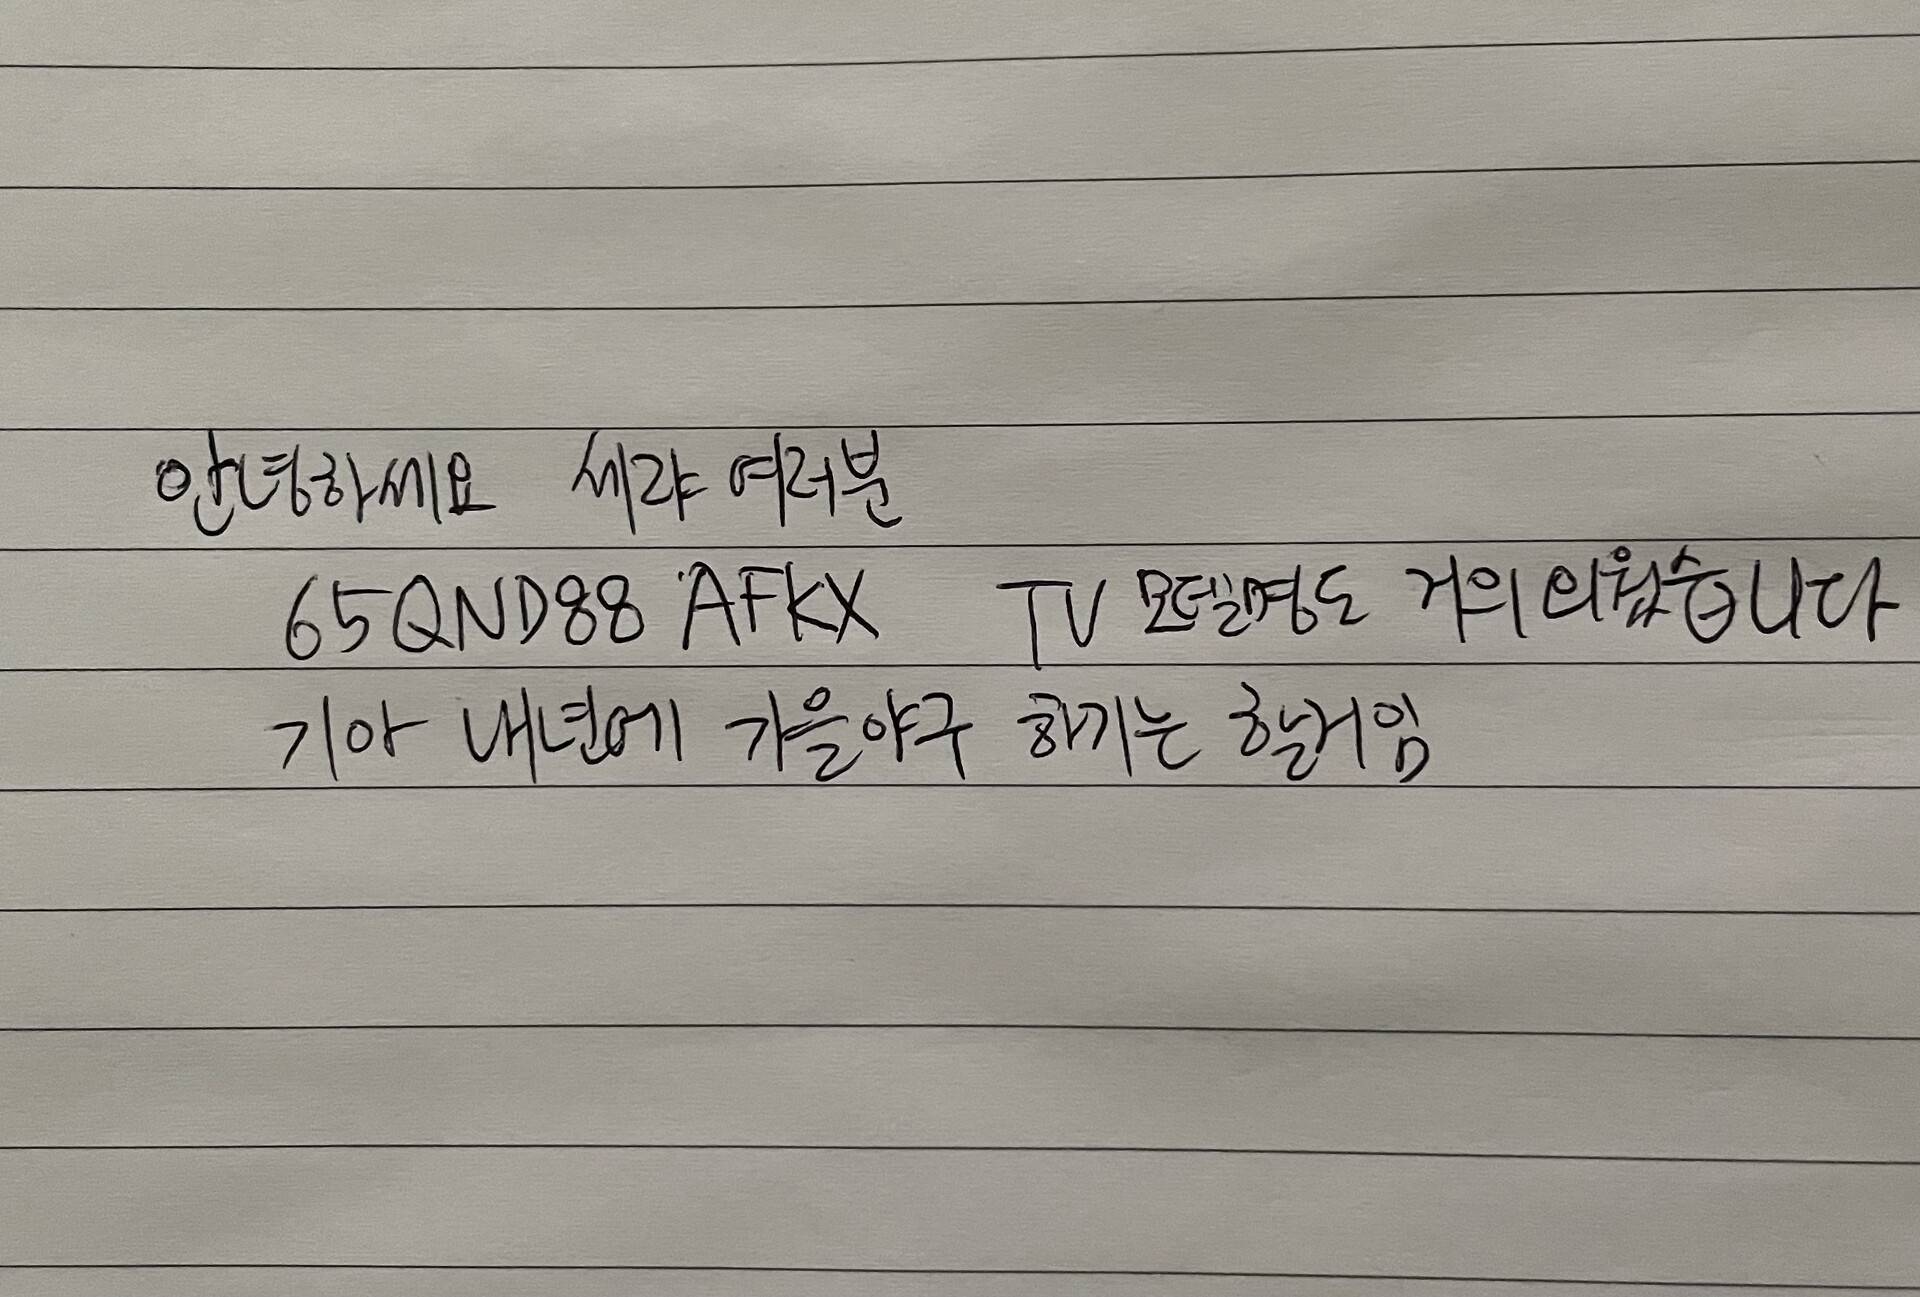 안녕하세요 세랴 여러분
65QND88 AFKX TV 모델명도 거의 외웠습니다
기아 내년에 가을야구 하기는 할거임